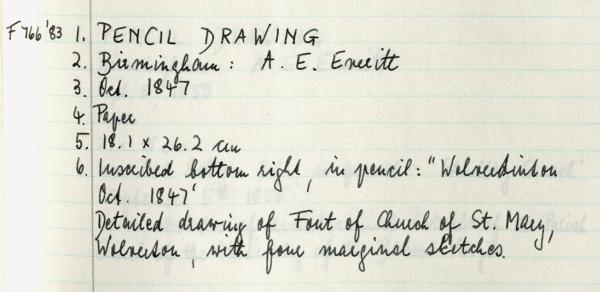 F766'83 1. PENCIL DRAWING
2. Birmingham: A. E. Everitt
3. Oct. 1847
4. Paper
5. 18.1 x 26.2 cm
6. Inscribed bottom right, in pencil: "Wolverdinton
Oct. 1847'
Detailed drawing of Font of Church of St. Mary,
Wolverton, with four marginal sketches.